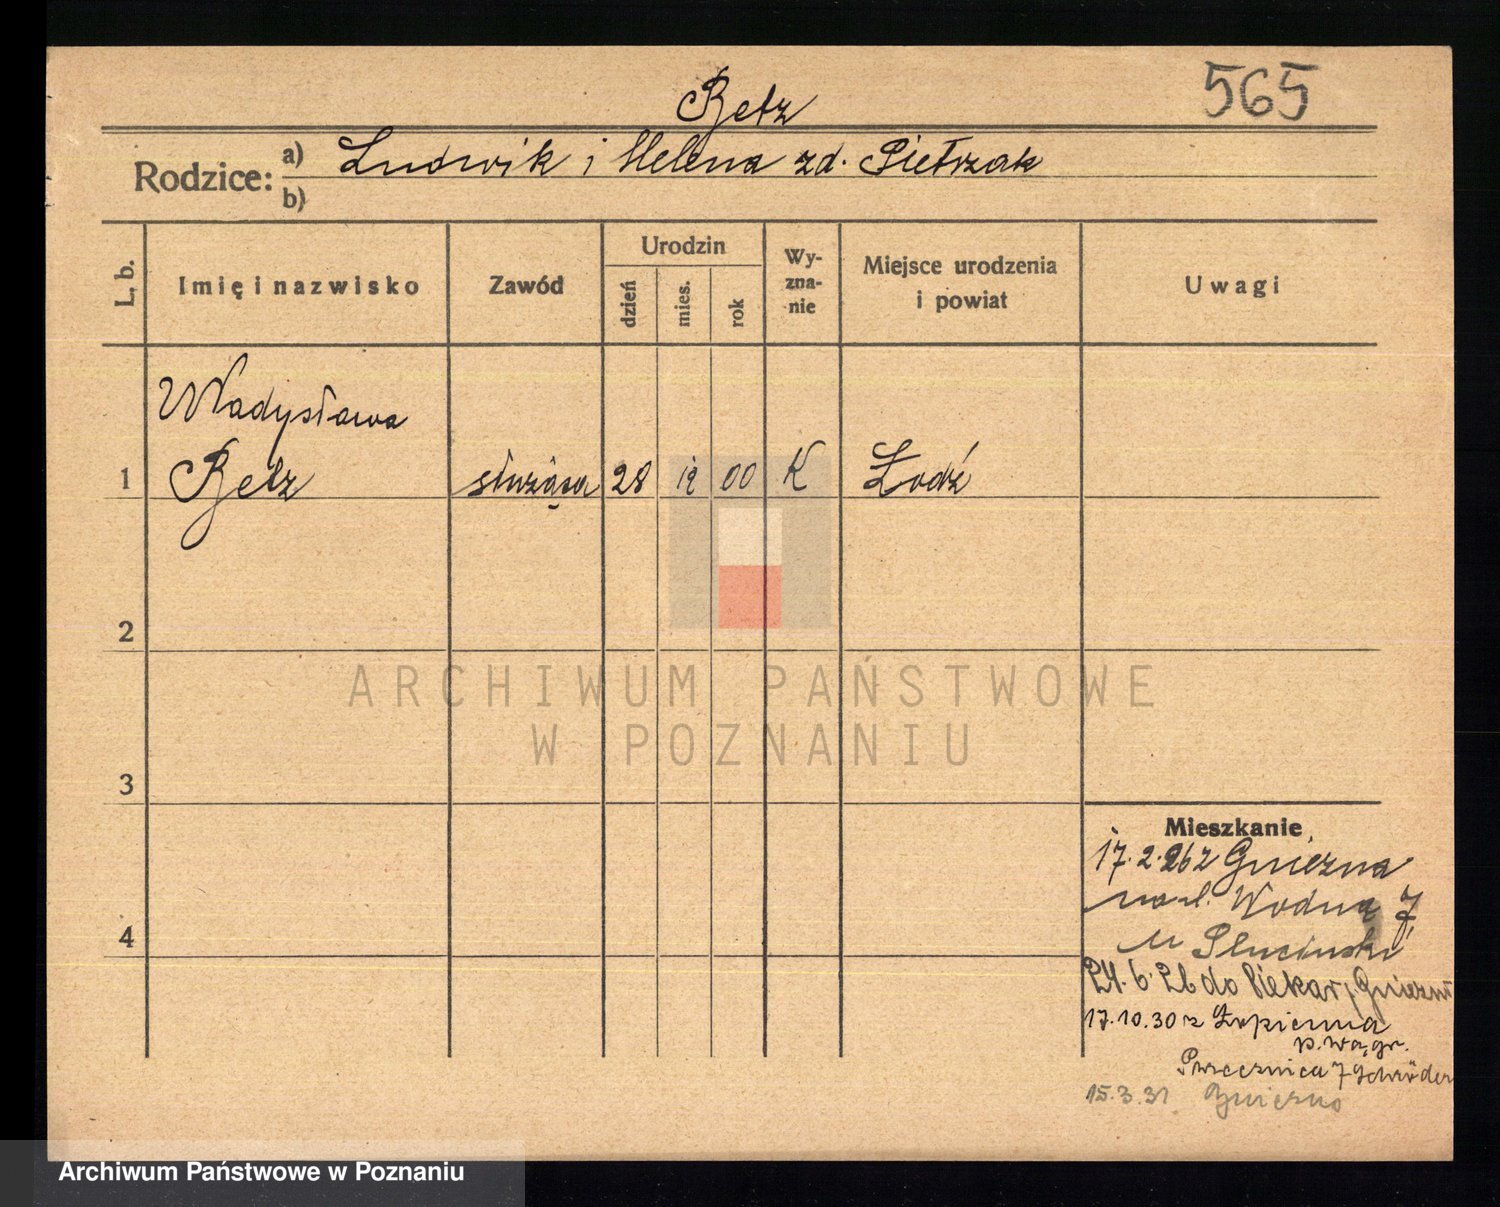 Betz
565
Rodzice:
a) Ludwik i Helena zd. Pietrzak
b)
L. b.
Imię i nazwisko
Zawód
Urodzin
dzień
mies.
rok
Wy-
zna-
nie
Miejsce urodzenia
i powiat
Uwagi
Władysława
1 Betz służąca 28 12 00 K Łódź
2
3
4
ARCHIWUM PAŃSTWOWE
W POZNANIU
Mieszkanie
17.2.26 z Gniezna
na ul. Wodną 7,
u Pluciński
24.6.26 do Piekar, Gniezno
17.10.30 z Łopienna
p. Wągr.
Przecznica 7 Schröder
15.3.31 Gniezno
Archiwum Państwowe w Poznaniu